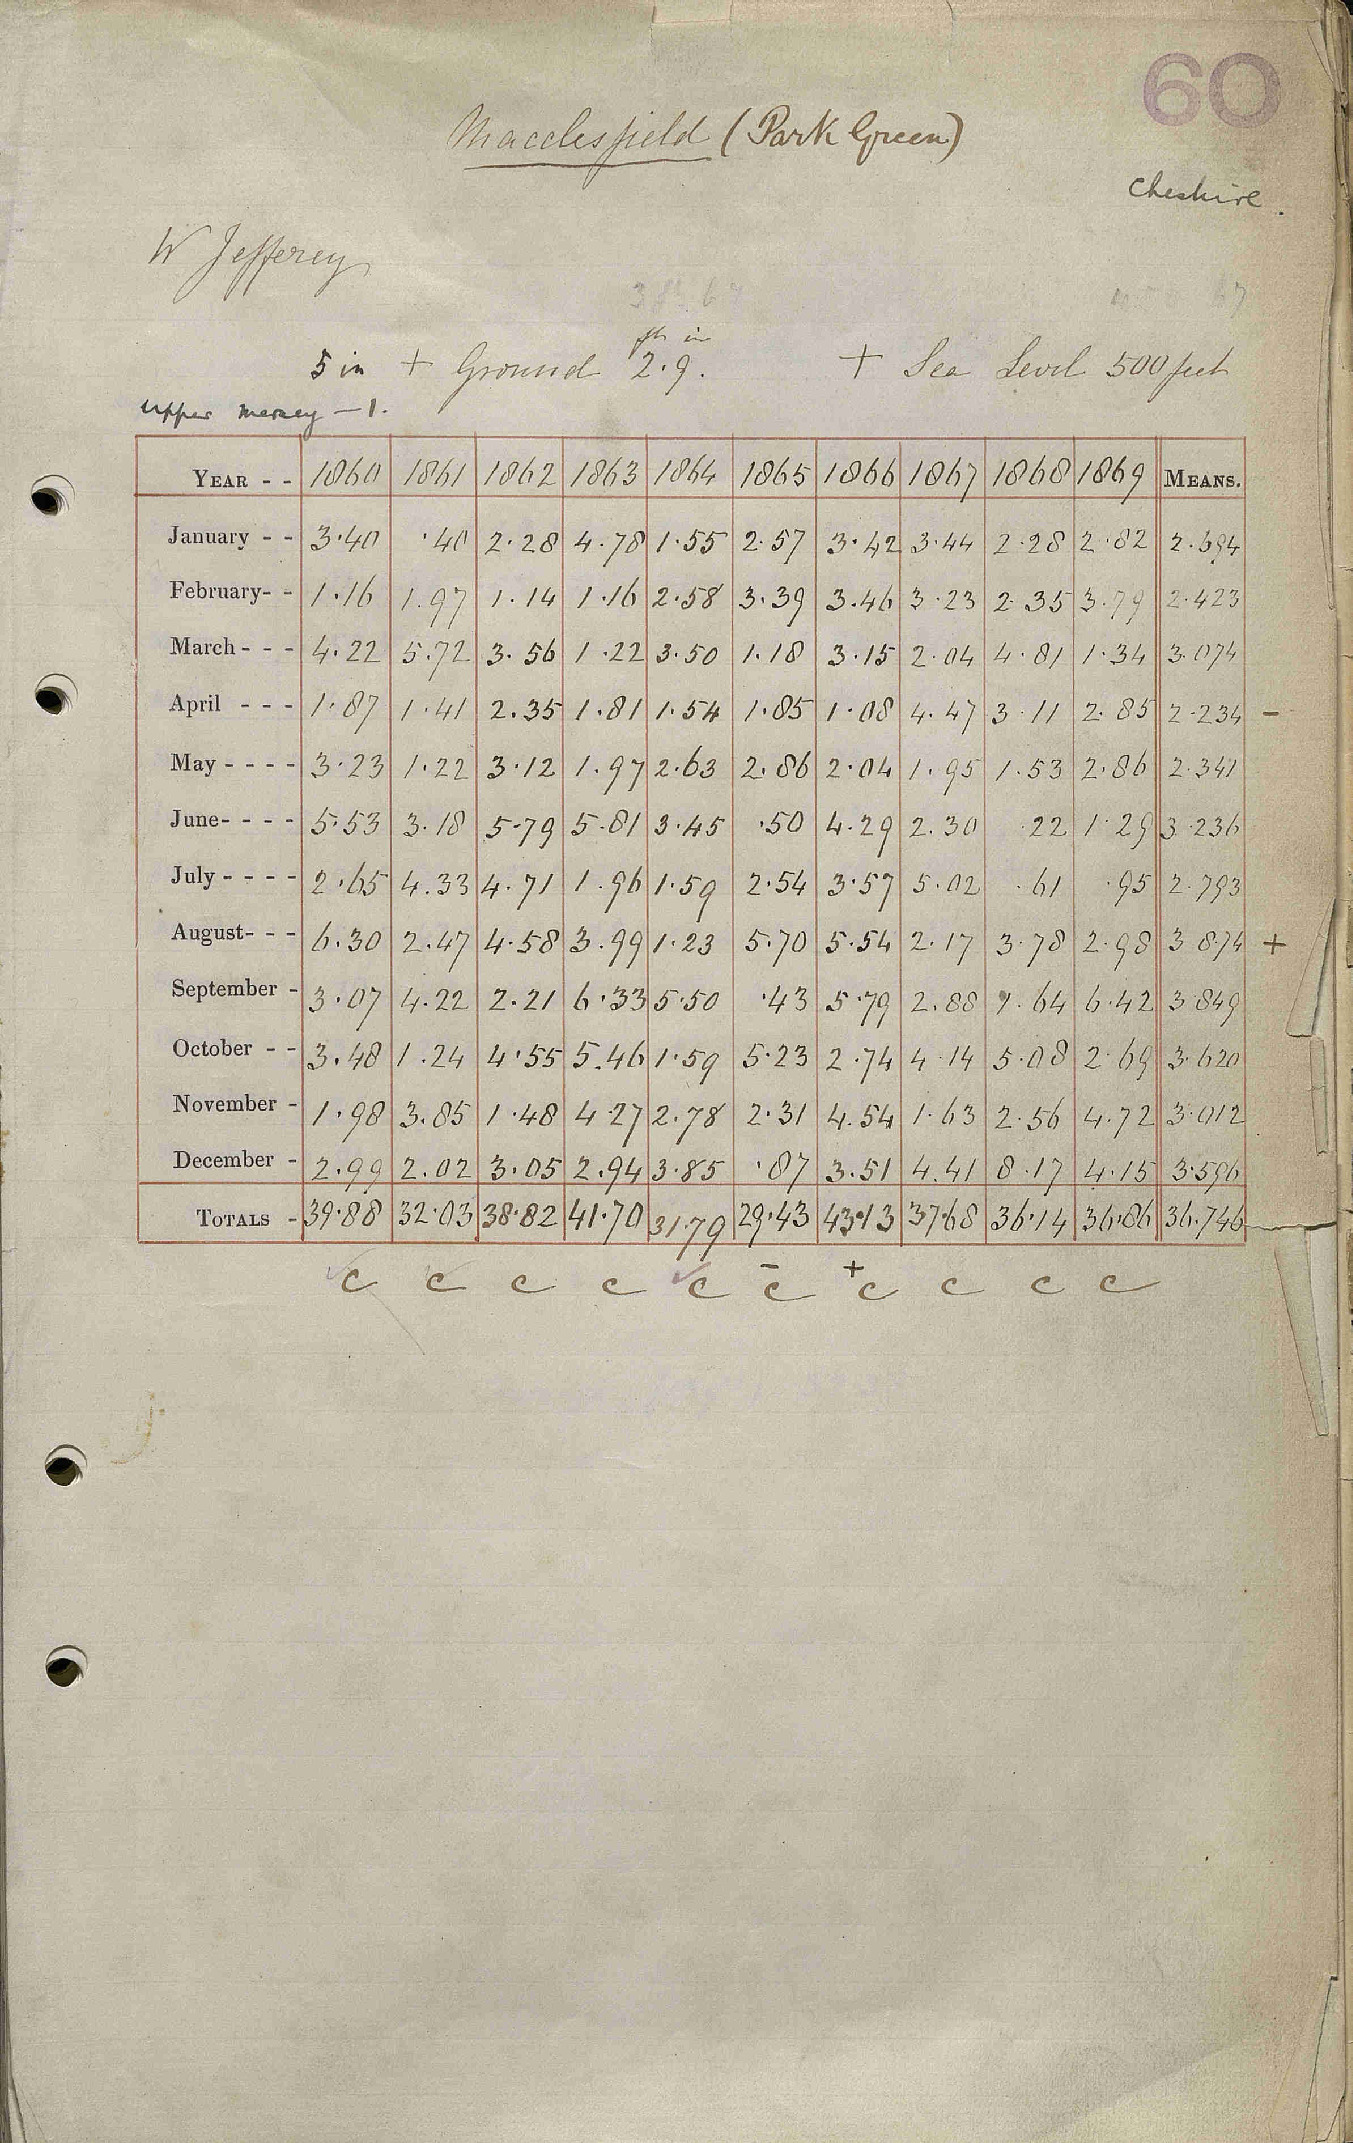 60
Macclesfield (Park Green)
Cheshire.
W Jefferey
ft in
5 in + Ground 2·9. + Sea Level 500 feet
upper mersey — 1.
YEAR - - 1860 1861 1862 1863 1864 1865 1866 1867 1868 1869 MEANS.
January - - 3·40 ·40 2·28 4·78 1·55 2·57 3·42 3·44 2·28 2·82 2·694
February- - 1·16 1·97 1·14 1·16 2·58 3·39 3·46 3·23 2·35 3·79 2·423
March - - - 4·22 5·72 3·56 1·22 3·50 1·18 3·15 2·04 4·81 1·34 3·074
April - - - 1·87 1·41 2·35 1·81 1·54 1·85 1·08 4·47 3·11 2·85 2·234 –
May - - - - 3·23 1·22 3·12 1·97 2·63 2·86 2·04 1·95 1·53 2·86 2·341
June- - - - 5·53 3·18 5·79 5·81 3·45 ·50 4·29 2·30 ·22 1·29 3·236
July - - - - 2·65 4·33 4·71 1·96 1·59 2·54 3·57 5·02 ·61 ·95 2·793
August- - - 6·30 2·47 4·58 3·99 1·23 5·70 5·54 2·17 3·78 2·98 3·874 +
September - 3·07 4·22 2·21 6·33 5·50 ·43 5·79 2·88 1·64 6·42 3·849
October - - 3·48 1·24 4·55 5·46 1·59 5·23 2·74 4·14 5·08 2·69 3·620
November - 1·98 3·85 1·48 4·27 2·78 2·31 4·54 1·63 2·56 4·72 3·012
December - 2·99 2·02 3·05 2·94 3·85 ·87 3·51 4·41 8·17 4·15 3·596
TOTALS - 39·88 32·03 38·82 41·70 31·79 29·43 43·13 37·68 36·14 36·86 36·746
– +
c c c c c c c c c c